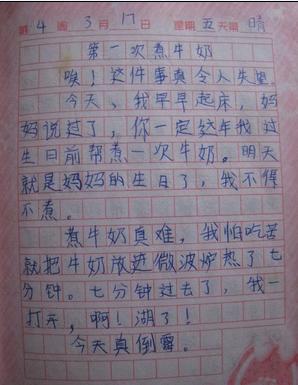 第4周3月17日 星期五天气 晴
第一次煮牛奶
唉！这件事真令人失望。
今天、我早早起床，妈
妈说过了，你一定给在我过
生日前帮煮一次牛奶。明天
就是妈妈的生日了，我不得
不煮。
煮牛奶真难，我怕吃苦
就把牛奶放进微波炉热了七
分钟。七分钟过去了，我一
打开，啊！湖了！
今天真倒霉。